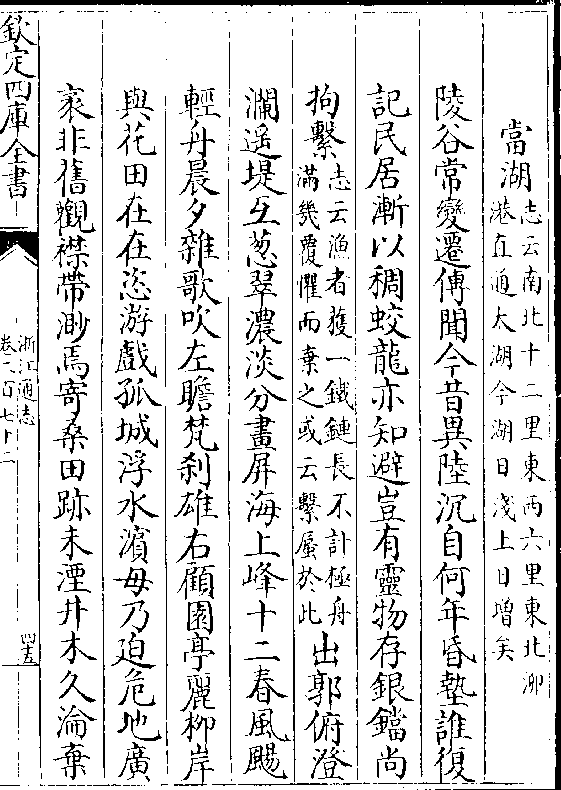 當湖志云南北十二里東西六里東北泖
港直通太湖今湖日淺上日增矣
陵谷常變遷傳聞今昔異陸沉自何年昏墊誰復
記民居漸以稠蛟龍亦知避豈有靈物存銀鐺尚
拘繫志云漁者獲一鐵鏈長不計極舟
滿幾覆懼而棄之或云繫蜃於此出郭俯澄
瀾遥堤互葱翠濃淡分畫屏海上峰十二春風颺
輕舟晨夕雜歌吹左瞻梵刹雄右顧園亭麗柳岸
與花田在在恣游戲孤城浮水濱毋乃迫危地廣
袤非舊觀襟帶渺焉寄桑田跡未湮井木久淪棄
欽定四庫全書
浙江通志
卷二百七十二
四五